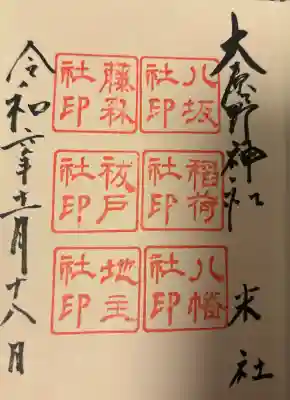 大原野神社 末社
八坂社印
稲荷社印
八幡社印
藤森社印
祓戸社印
地主社印
令和六年十一月十八日